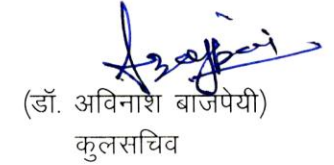 (डॉ. अविनाश बाजपेयी)
कुलसचिव